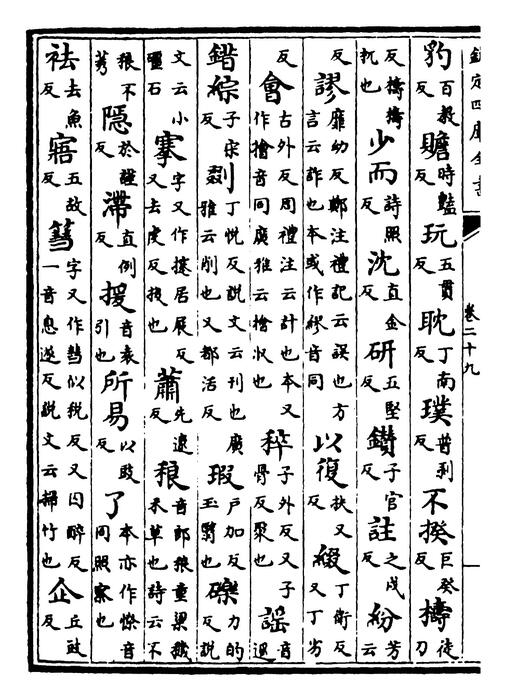 欽定四庫全書
卷二十九
豹百教反贍時豔反玩五貫反耽丁南反璞普剥反不揆巨癸反檮徒刀
反檮檮杌也少而詩照反沈直金反研五堅反鑚子官反註之戍反紛芳云
反謬靡幼反鄭注禮記云誤也方言云詐也本或作繆音同以復扶又反綴丁衛反又丁劣
反㑹古外反周禮注云計也本又作擈音同廣雅云擈收也稡子外反又子骨反聚也謡音遥
錯綜子宋反剟丁悦反說文云刊也廣雅云削也又都活反瑕户加反玉釁也礫力的反說
文云小石搴字又作攓居展反又去䖍反㧞也蕭先遼反稂音郎稂童梁䅟禾草也詩云不
稂不莠隠於謹反滯直例反援音袁引也所易以豉反了本亦作憭音同照察也
祛去魚反寤五故反篲字又作彗似稅反又囚醉反一音息遂反說文云掃竹也企丘豉反